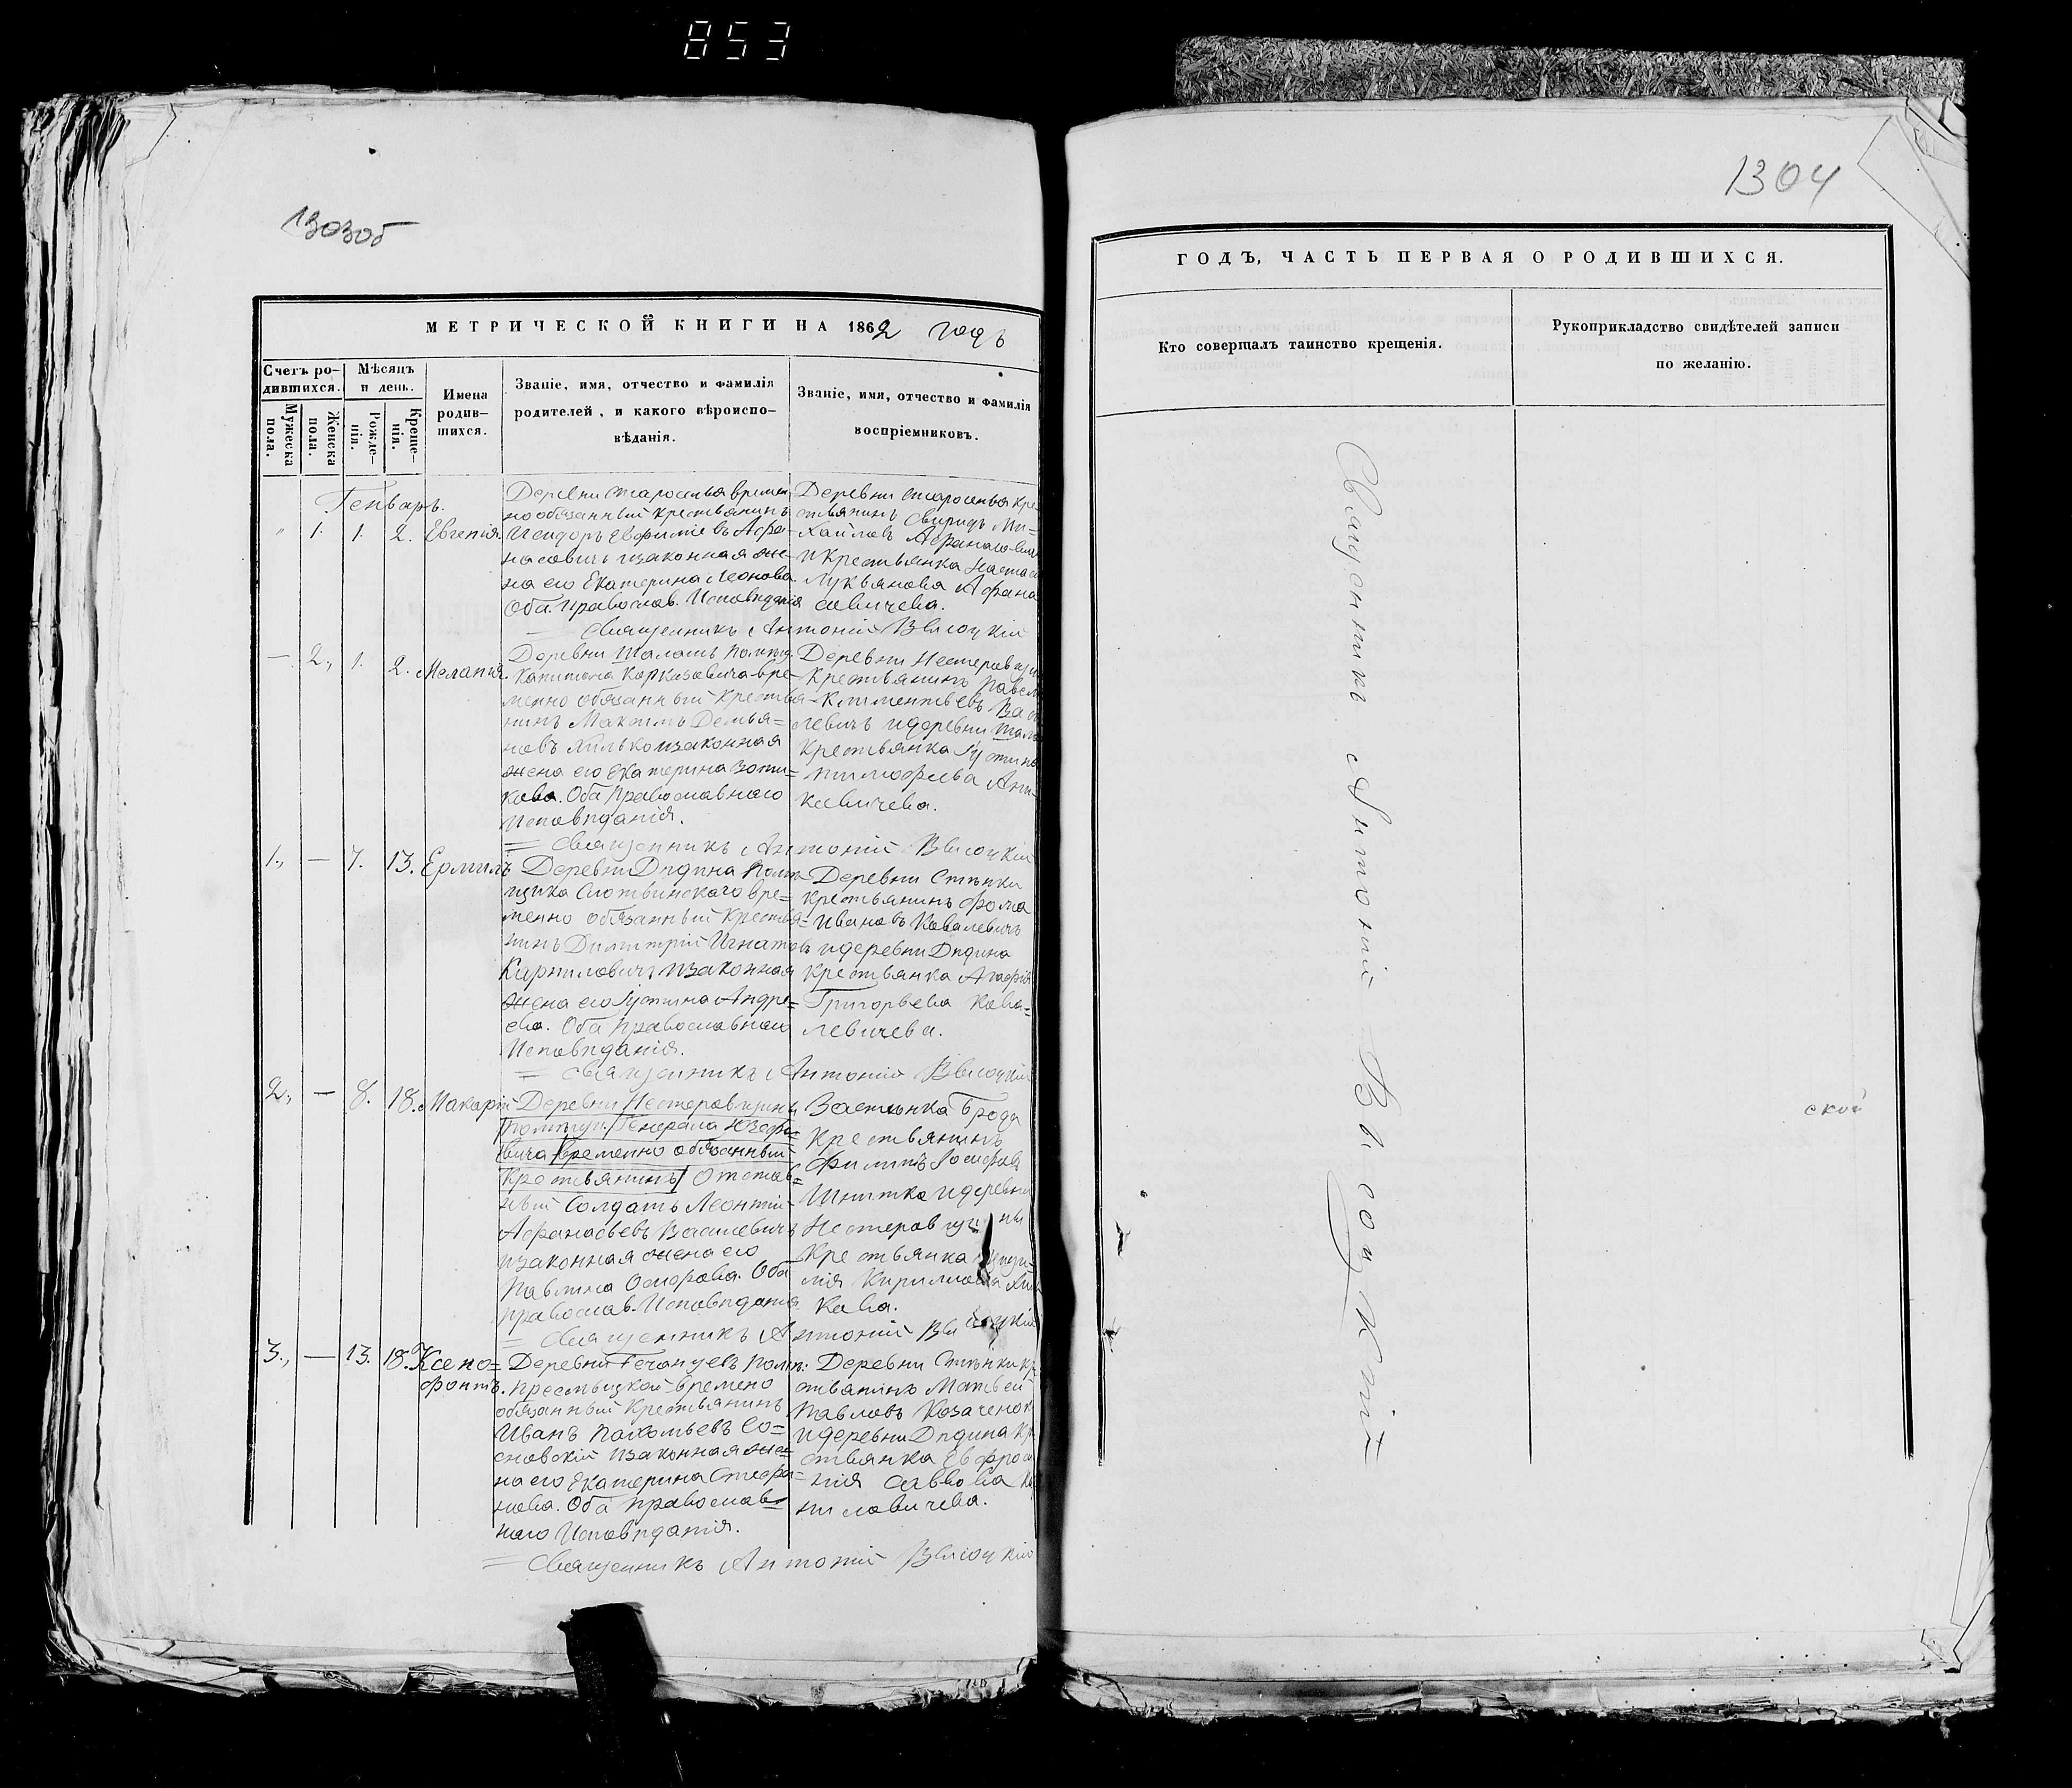 853
1303об
1304
МЕТРИЧЕСКОЙ КНИГИ НА 1862 годъ
Счетъ ро-
дившихся.
Мужеска
пола.
Женска
пола.
Мѣсяцъ
и день.
Рожде-
нія.
Креще-
нія.
Имена
родив-
шихся.
Званіе, имя, отчество и фамилія
родителей, и какого вѣроиспо-
вѣданія.
Званіе, имя, отчество и фамилія
воспріемниковъ.
Генварь.
" 1. 1. 2. Евгенія.
Деревни Староселья времен
но обязанный крестьянинъ
Исидоръ Евфиміевъ Афа-
насовичъ изаконная же-
на его Екатерина Леонова.
Оба Православ. Исповѣданія
Деревни Староселья кре-
стьянинъ Свиридъ Ми-
хайловъ Афанасович
и Крестьянка Настас
Лукьянова Афана
совичева.
= Священникъ Антоній Высоцкій
— 2., 1. 2. Меланія.
Деревни Помѣщ.
Капитана Карказовича вре-
менно обязанный Крестья-
нинъ Максимъ Демья-
новъ Хилько изаконная
жена его Екатерина Зоти-
кова. Оба Православнаго
Исповѣданія.
Деревни Нестеровщи
Крестьянинъ Павел
Климентьевъ Васи
левичъ идеревни
Крестьянка Густина
Тимофеева Ани-
кевичева.
= Священникъ Антоній Высоцкій
1., — 7. 13. Ермилъ
Деревни Дѣдина Помѣ-
щика Слотвинскаго вре-
менно обязанный Крестья-
нинъ Димитрій Игнатовъ
Кирпиловичъ изаконная
жена его Густина Андре-
ева. Оба Православнаго
Исповѣданія.
Деревни Стѣнки
крестьянинъ Фома
Ивановъ Ковалевичъ
идеревни Дѣдина
Крестьянка Агафія
Григорьева Кова-
левичева.
= Священникъ Антоній Высоцкій
2., — 8. 18. Макарій
Деревни Нестеровщины
Помѣщи. Генерала Юзефо-
вича временно обязанный
Крестьянинъ Отстав-
ный Солдатъ Леонтій
Афанасьевъ Василевичъ
изаконная жена его
Павлина Осипова. Оба
Православ. Исповѣданія.
Застѣнка Брода
Крестьянинъ
Филипъ Іосифовъ
Шпитка идеревни
Нестеровщины
Крестьянка
Кирилова
кова.
= Священникъ Антоній Высоцкій
3., — 13. 18. Ксено-
фонтъ.
Деревни Гечанцевъ Помѣ:
временно
обязанный Крестьянинъ
Иванъ Пахомьевъ Со-
сновскій изаконная же-
на его Екатерина Стефа-
нова. Оба Православ-
наго Исповѣданія.
Деревни Стѣнки кр
стьянинъ Матвей
Павловъ Козаченок
идеревни Дѣдина Кр
стьянка Евфроси
нія Саввова
ниловичева.
= Священникъ Антоній Высоцкій
ГОДЪ, ЧАСТЬ ПЕРВАЯ О РОДИВШИХСЯ.
Кто совершалъ таинство крещенія.
Рукоприкладство свидѣтелей записи
по желанію.
Священникъ Антоній Высоцкій
ской